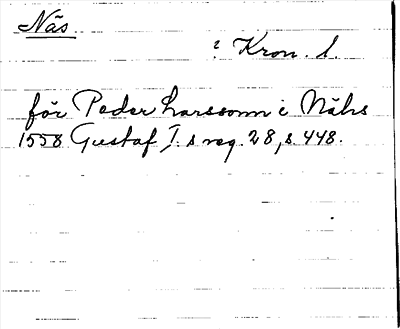 Näs
? Kron. l.
för Peder Larssonn i Nähs
1558 Gustaf I. s reg. 28, s. 448.